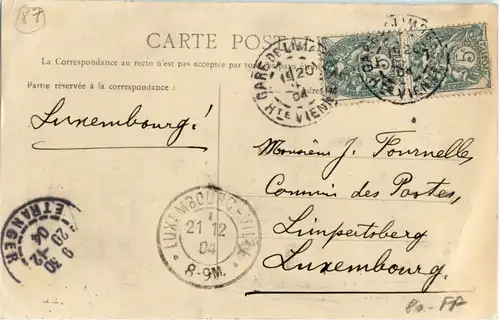 87
CARTE POSTALE
La Correspondance au recto n'est pas acceptée par
Partie réservée à la correspondance :
Luxembourg!
GARE DE LIMOGES
20
04
HTE VIENNE
5
5
04
Monsieur J. Tournelle,
Commis des Postes,
Limpertsberg
Luxembourg.
LUXEMBOURG-VILLE
21 12
04
8-9M.
ETRANGER
20
12
04
9 30
80.- FF